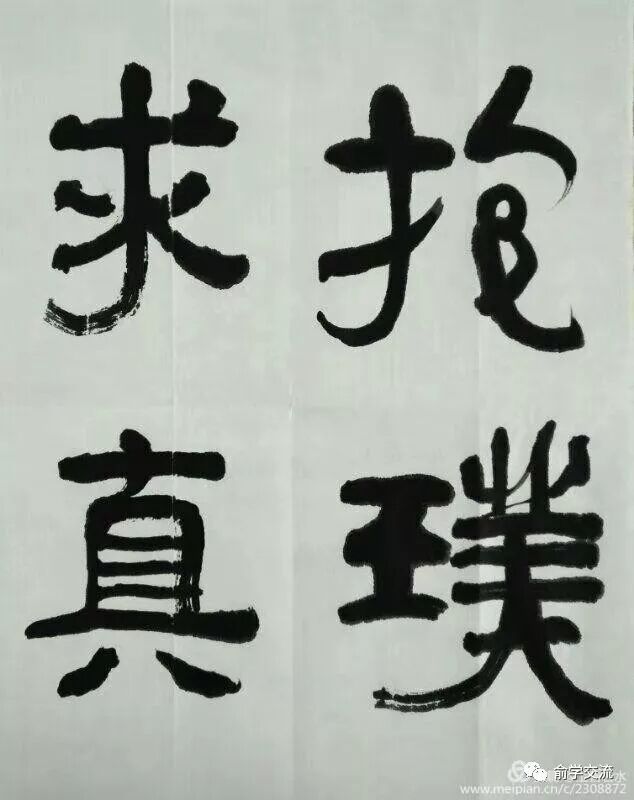 抱璞
求真
俞学交流
水
www.meipian.cn/c/2308872